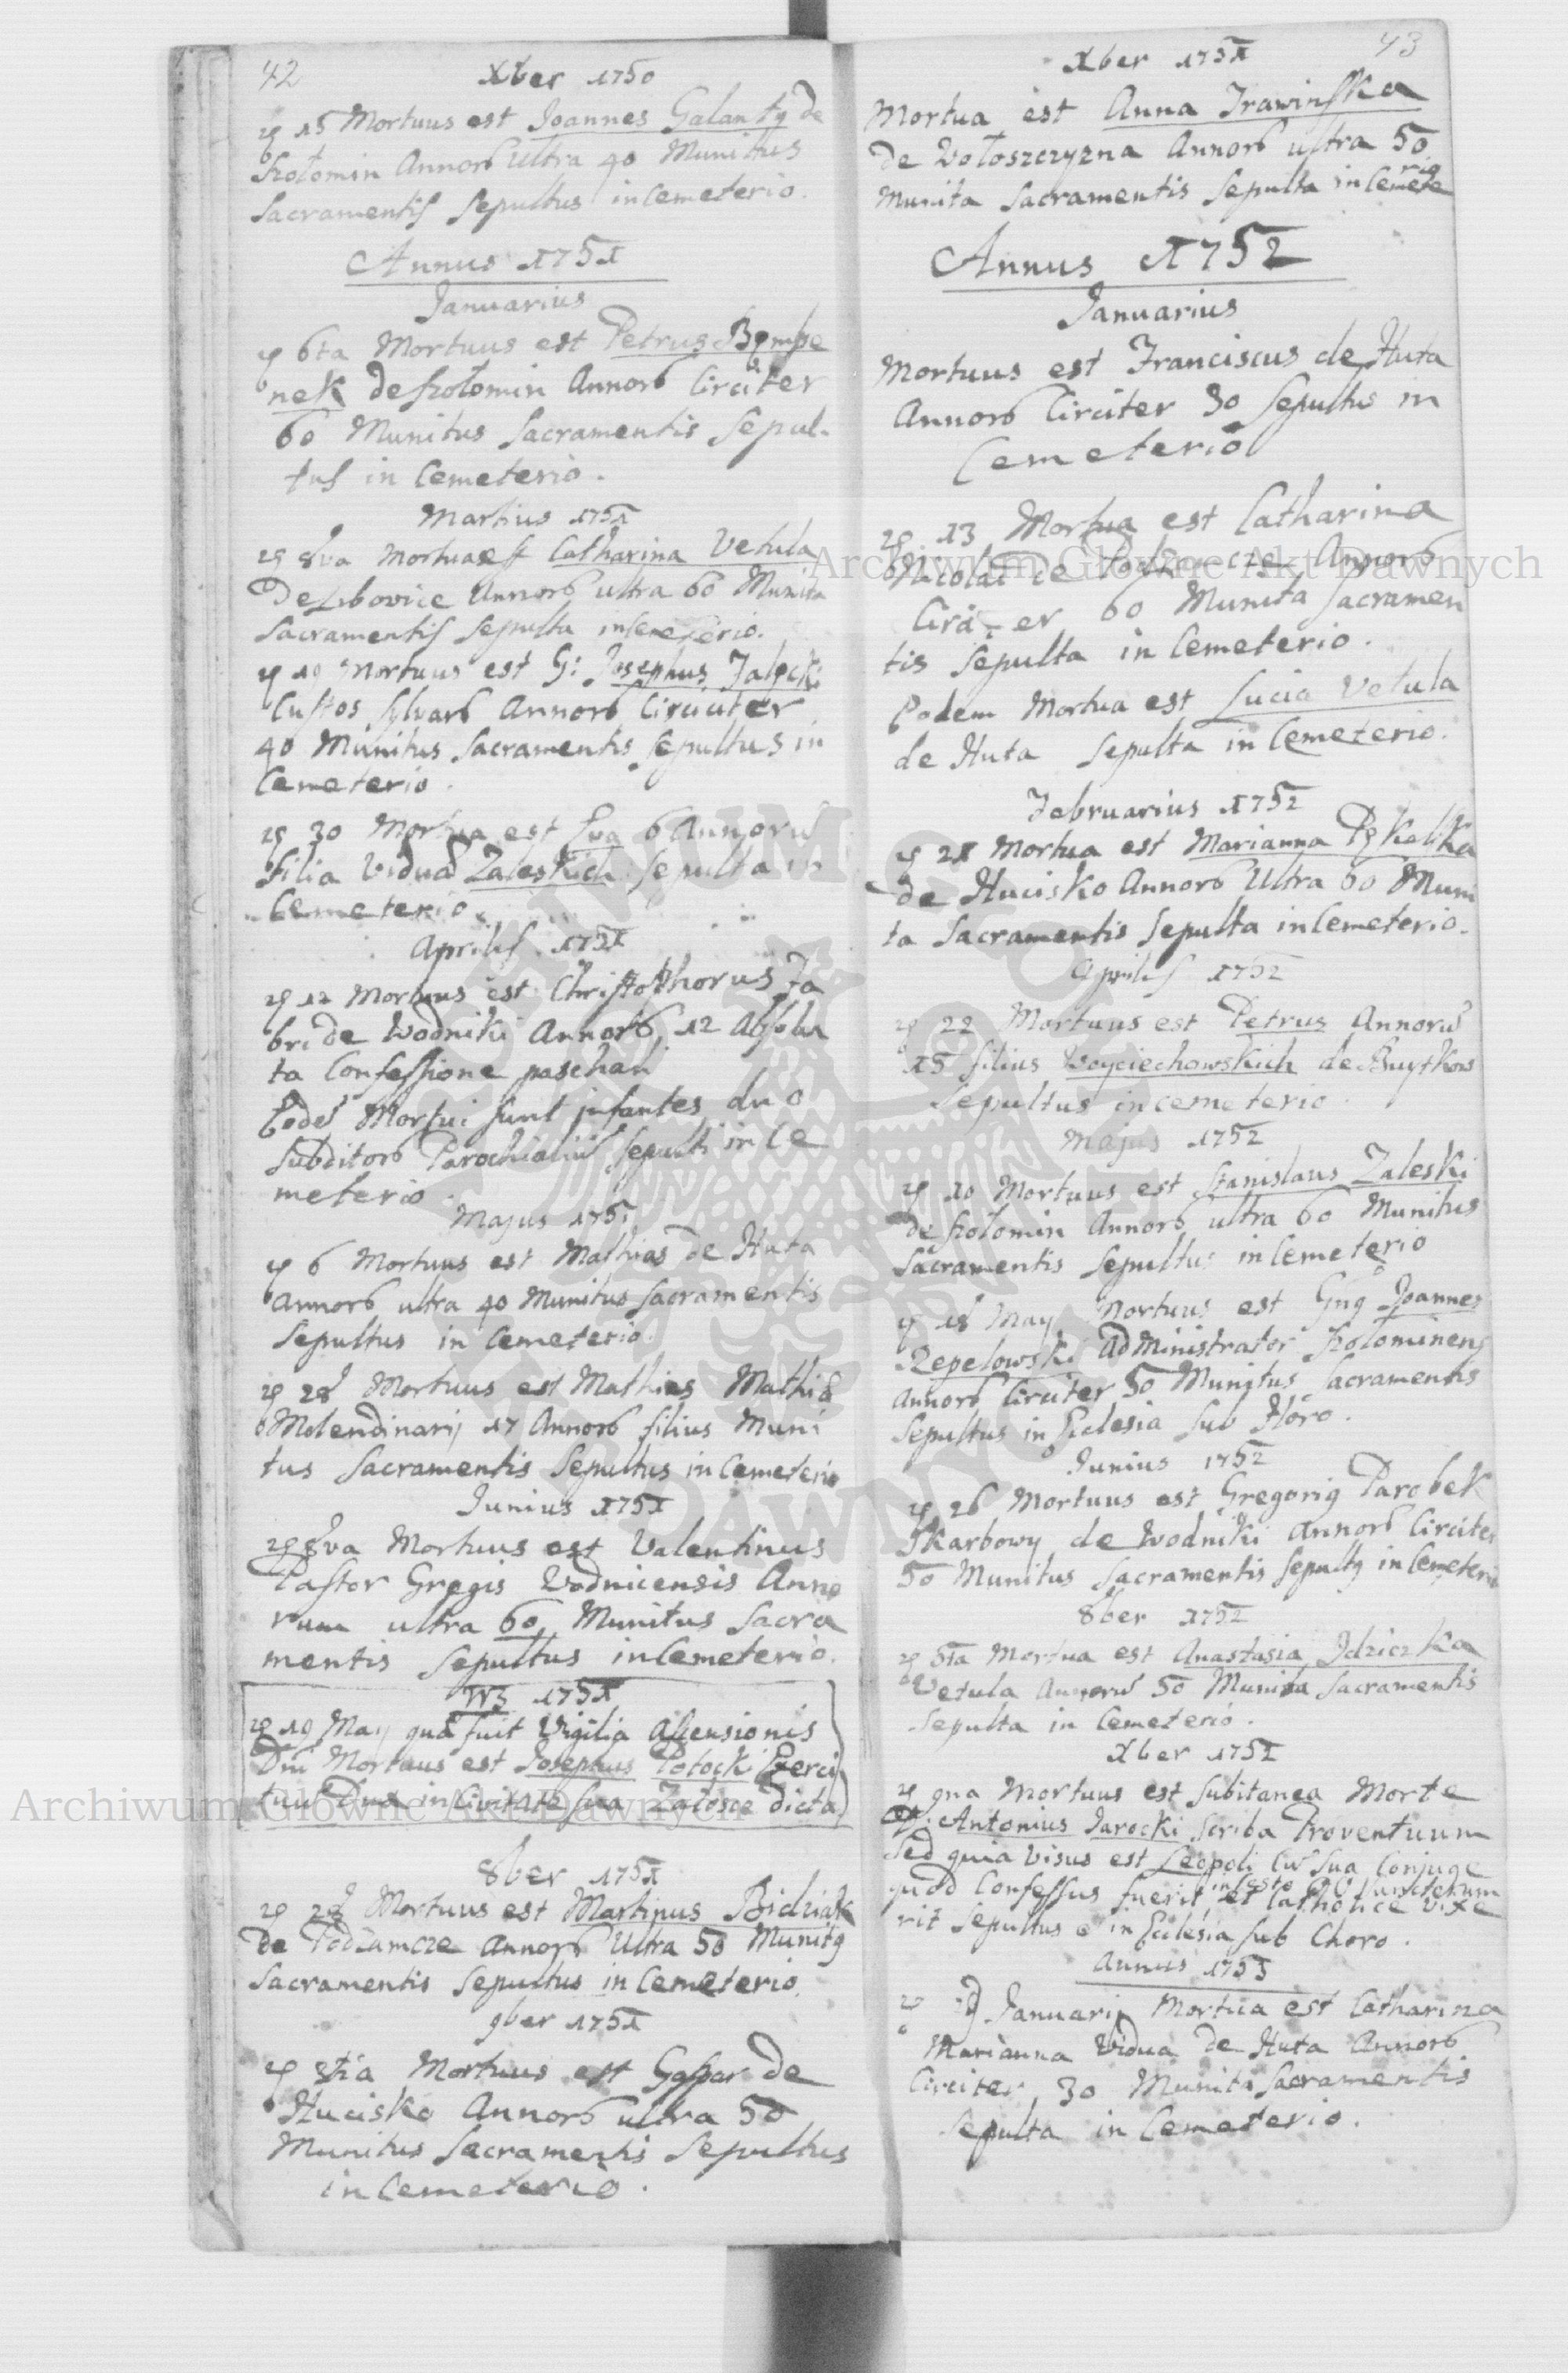 42
Xber 1750
15 Mortuus est Joannes Galanty de
Hołomin Annorb ultra 40 Munitus
Sacramentis Sepultus in Cemeterio.
Annus 1751
Januarius
6ta Mortuus est Petrus
nek de Hołomin Annorb Circiter
60 Munitus Sacramentis Sepul-
tus in Cemeterio.
Martius 1751
8va Mortua est Catharina Vetula
De Annorb ultra 60 Munita
Sacramentis Sepulta in Cemeterio.
19 Mortuus est G: Josephus
Custos Sylvarb Annorb Circiter
40 Munitus Sacramentis Sepultus in
Cemeterio.
30 Mortua est Eva 6 Annorū
filia Vidua Zaleskich Sepulta in
Cemeterio.
Aprilis 1751
12 Mortuus est Christophorus Fa
bri de Wodniki Annorb 12 Absolu
ta Confessione paschali
Eodē Mortui sunt infantes duo
Subditorb Parochialiū Sepulti in Ce
meterio.
Majus 1751
6 Mortuus est Mathias de Huta
Annorb ultra 40 Munitus Sacramentis
Sepultus in Cemeterio.
28 Mortuus est Mathias Mathiæ
Molendinarij 17 Annorb filius Muni
tus Sacramentis Sepultus in Cemeterio
Junius 1751
8va Mortuus est Valentinus
Pastor Gregis Wodnicensis Anno
rum ultra 60 Munitus Sacra
mentis Sepultus in Cemeterio.
1751
19 May qua fuit Vigilia Ascensionis
Dni Mortuus est Josephus Potocki Exerci
tuū Dux in Civitate sua Załosce dicta
8ber 1751
28 Mortuus est Martinus Bidziak
De Podzamcze Annorb Ultra 50 Munitg
Sacramentis Sepultus in Cemeterio.
9ber 1751
Mortuus est Gaspar de
Hucisko Annorb ultra 50
Munitus Sacramentis Sepultus
in Cemeterio.
43
Xber 1751
Mortua est Anna Trawinska
de Wołoszczyzna Annorb ultra 50
Munita Sacramentis Sepulta in Cemete
rio
Annus 1752
Januarius
Mortuus est Franciscus de Huta
Annorb Circiter 30 Sepultus in
Cemeterio
13 Mortua est Catharina
Nicolai de Podzamcze Annorb
Circiter 60 Munita Sacramen
tis Sepulta in Cemeterio.
Eodem Mortua est Lucia Vetula
de Huta Sepulta in Cemeterio.
Februarius 1752
21 Mortua est Marianna
de Hucisko Annorb Ultra 60 Muni
ta Sacramentis Sepulta in Cemeterio.
Aprilis 1752
22 Mortuus est Petrus Annorū
15 filius Woyciechowskich de
Sepultus in cemeterio.
Majus 1752
10 Mortuus est Stanislaus Zaleski
de Hołomin Annorb ultra 60 Munitus
Sacramentis Sepultus in Cemeterio
18 May Mortuus est Gng Joannes
Rzepelowski Administrator Hołominens
Annorb Circiter 50 Munitus Sacramentis
Sepultus in Ecclesia Sub
Junius 1752
26 Mortuus est Gregorig Parobek
Skarbowy de Wodniki Annorb Circiter
50 Munitus Sacramentis Sepultg in Cemeterio
8ber 1752
5ta Mortua est Anastasia Idziczka
Vetula Annorū 50 Munita Sacramentis
Sepulta in Cemeterio.
Xber 1752
9na Mortuus est Subitanea Morte
Antonius Jarocki Scriba Proventuum
Sed quia visus est Leopoli cū sua Conjuge
in festo
quod Confessus fuerit, et Catholice vixe
rit Sepultus e in Ecclesia sub Choro.
Annus 1753
Januarij Mortua est Catharina
Marianna Vidua de Huta Annorb
Circiter 30 Munita Sacramentis
Sepulta in Cemeterio.
Archiwum Główne Akt Dawnych
Archiwum Główne Akt Dawnych
ARCHIWUM GŁÓWNE AKT DAWNYCH